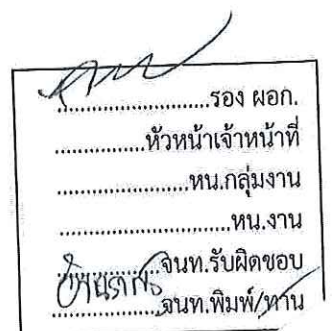 ..........................รอง ผอก.
................หัวหน้าเจ้าหน้าที่
.......................หน.กลุ่มงาน
..............................หน.งาน
..................จนท.รับผิดชอบ
..................จนท.พิมพ์/ทาน